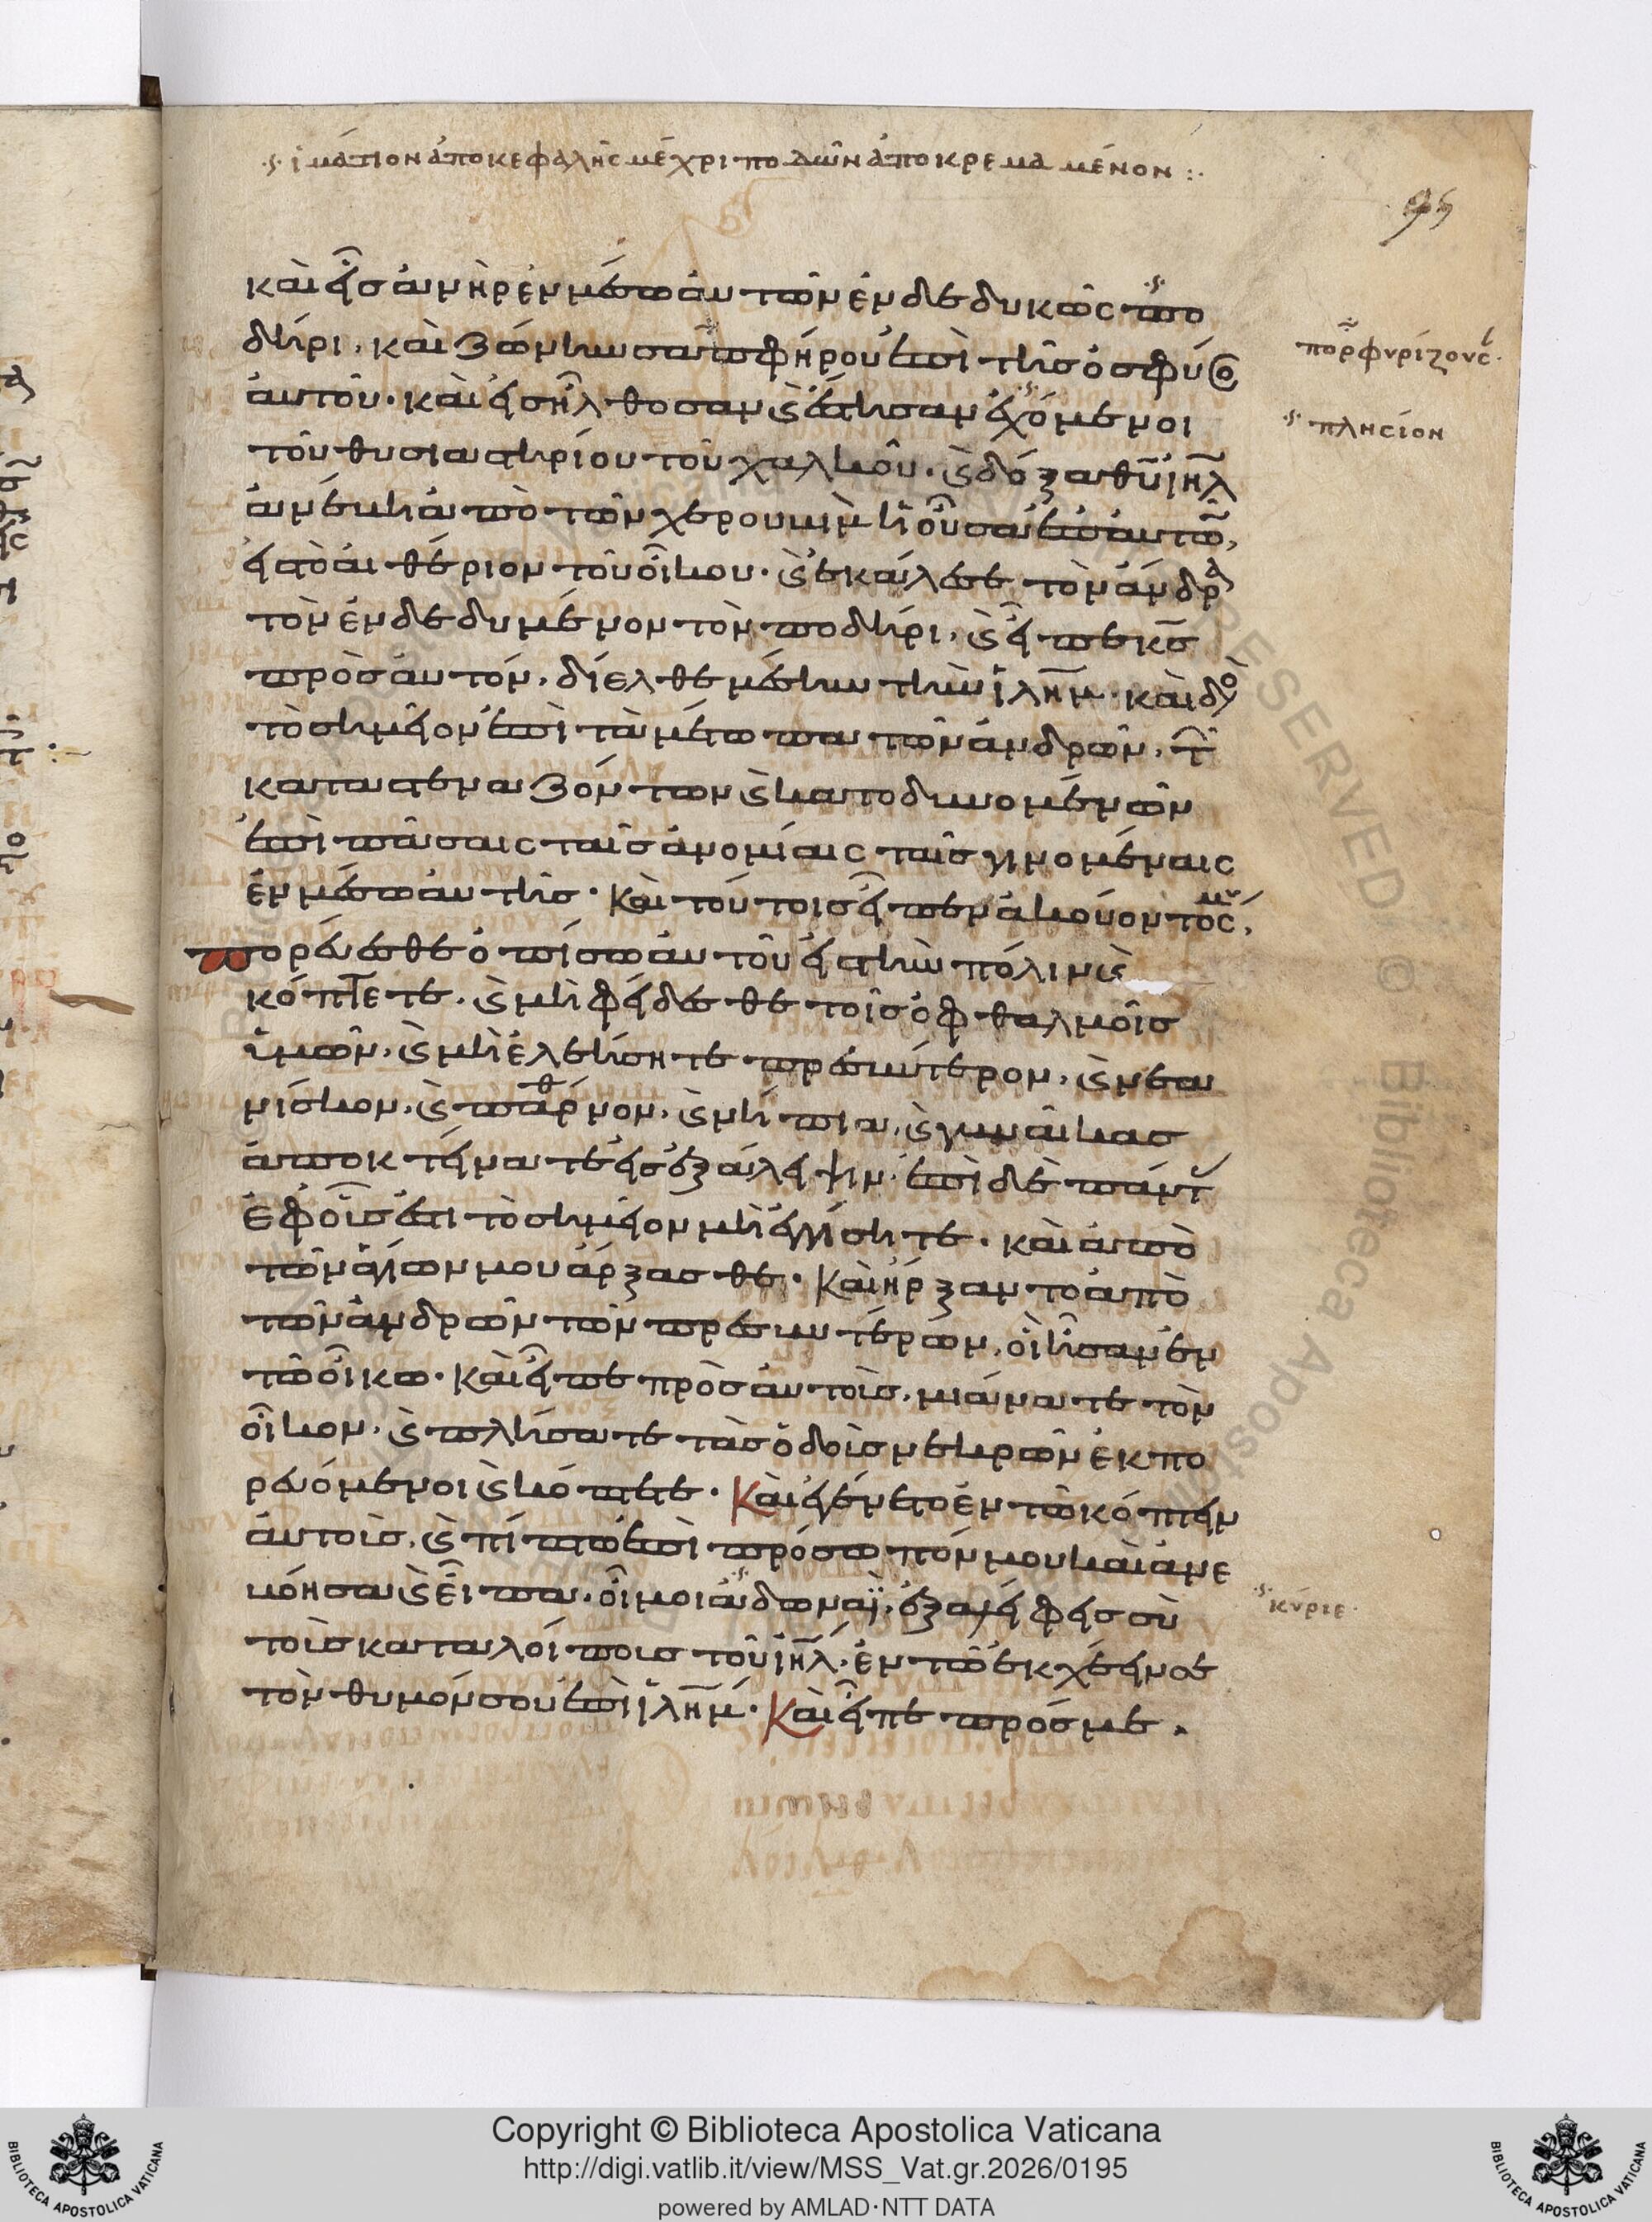 ἱμάτιον ἀπο κεφαλῆς μέχρι ποδῶν ἀποκρεμαμένον :·
95
καὶ εἷσ ἀνὴρ ἐν μέσω αὐτῶν ἐνδεδυκῶς πο
δήρι, καὶ ζώνην σαπφήρου ἐπὶ τῆσ ὀσφύος
πορφυρίζουσ
αὐτοῦ· καὶ εἰσῆλθοσαν (καὶ) ἔστησαν ἐχόμενοι
πλησίον
τοῦ θυσιαστηρίου τοῦ χαλκοῦ· (καὶ) δόξα θῦ ἰηλ
ἀνέβη ἀπὸ τῶν χερουβιμ ἡ οὖσα ἐπ' αὐτῶ,
εἰς τὸ αἴθριον τοῦ οἴκου· (καὶ) ἐκάλεσε τὸν ἄνδρα
τὸν ἐνδεδυμένον τὸν ποδήρι, (καὶ) εἶπε κσ
πρὸσ αὐτόν, δίελθε μέσην τὴν ἱλημ· καὶ δὸ
τὸ σημεῖον ἐπὶ τὰ μέτωπα τῶν ἀνδρῶν, τῶ
καταστεναζόντων (καὶ) κατοδυνομένων
ἐπὶ πάσαις ταῖσ ἀνομίαις ταῖσ γινομέναις
ἐν μέσω αὐτῆσ· καὶ τούτοισ εἶπεν ἀκούοντός μου,
πορεύεσθε ὀπίσω αὐτοῦ εἰς τὴν πόλιν (καὶ)
κόπτετε, (καὶ) μὴ φείδεσθε τοῖσ ὀφθαλμοῖσ
ὑμῶν, (καὶ) μὴ ἐλεήσητε πρεσβύτερον, (καὶ) νεα
νίσκον, (καὶ) παρθένον, (καὶ) νήπια, (καὶ) γυναῖκασ
ἀποκτείνατε εἰσ ἐξάλειψιν· ἐπὶ δὲ πάντ
ἐφ' οἷσ ἐστι τὸ σημεῖον μὴ ἐγγίσητε· καὶ ἀπὸ
τῶν ἁγίων μου ἄρξασθε· Καὶ ἤρξαντο ἀπὸ
τῶν ἀνδρῶν τῶν πρεσβυτέρων, οἳ ἦσαν ἐν
τῶ οἴκω· Καὶ εἶπε πρὸσ αὐτοὺσ, μιάνατε τὸν
οἶκον, (καὶ) πλήσατε τὰσ ὁδοὺσ νεκρῶν ἐκπο
ρευόμενοι (καὶ) κόπτετε· Καὶ ἐγένετο ἐν τῶ κόπτειν
αὐτοὺσ, (καὶ) πίπτω ἐπὶ πρόσωπόν μου καὶ ἀνε
βόησα (καὶ) εἶπα· οἴμοι ἀδωναῒ, ἐξαλείφεισ σὺ
κύριε·
τοὺσ καταλοίπουσ τοῦ ἰηλ, ἐν τῶ ἐκχέειν σε
τὸν θυμόν σου ἐπὶ ἱλημ· Καὶ εἶπε πρόσ με·
Copyright © Biblioteca Apostolica Vaticana
http://digi.vatlib.it/view/MSS_Vat.gr.2026/0195
powered by AMLAD·NTT DATA